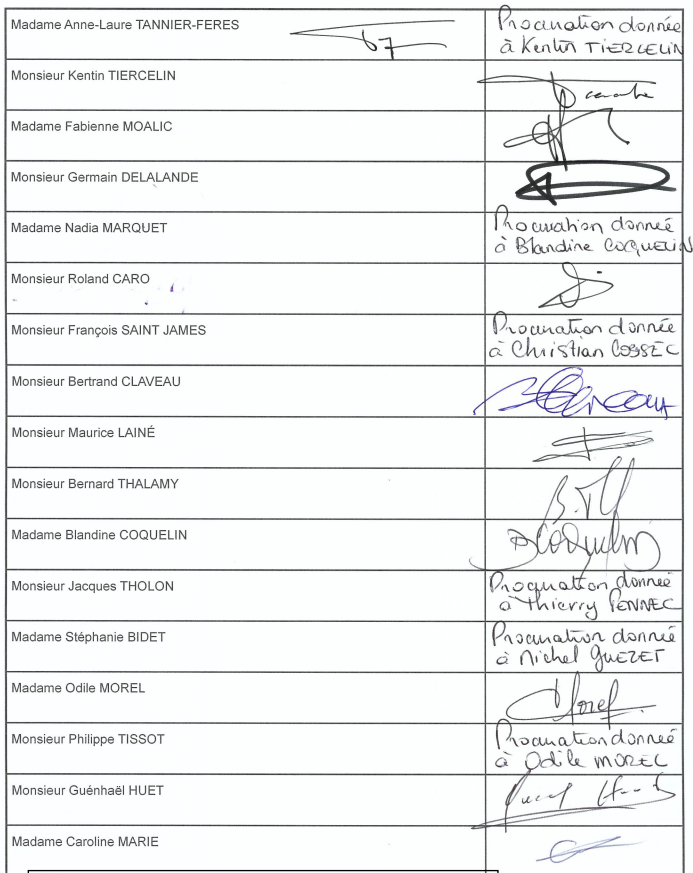 Madame Anne-Laure TANNIER-FERES
Procuration donnée
à Kentin TIERCELIN
Monsieur Kentin TIERCELIN
Madame Fabienne MOALIC
Monsieur Germain DELALANDE
Madame Nadia MARQUET
Procuration donnée
à Blandine COQUELIN
Monsieur Roland CARO
Monsieur François SAINT JAMES
Procuration donnée
à Christian COSSEC
Monsieur Bertrand CLAVEAU
Monsieur Maurice LAINÉ
Monsieur Bernard THALAMY
B.Th
Madame Blandine COQUELIN
BCoquelin
Monsieur Jacques THOLON
Procuration donnée
à Thierry PENNEC
Madame Stéphanie BIDET
Procuration donnée
à Michel GUEZET
Madame Odile MOREL
Morel
Monsieur Philippe TISSOT
Procuration donnée
à Odile MOREL
Monsieur Guénhaël HUET
Madame Caroline MARIE